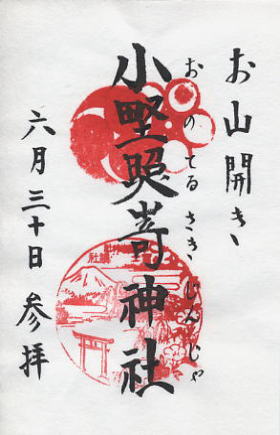 お山開き
おのてるさきじんじゃ
小野照嵜神社
六月三十日参拝